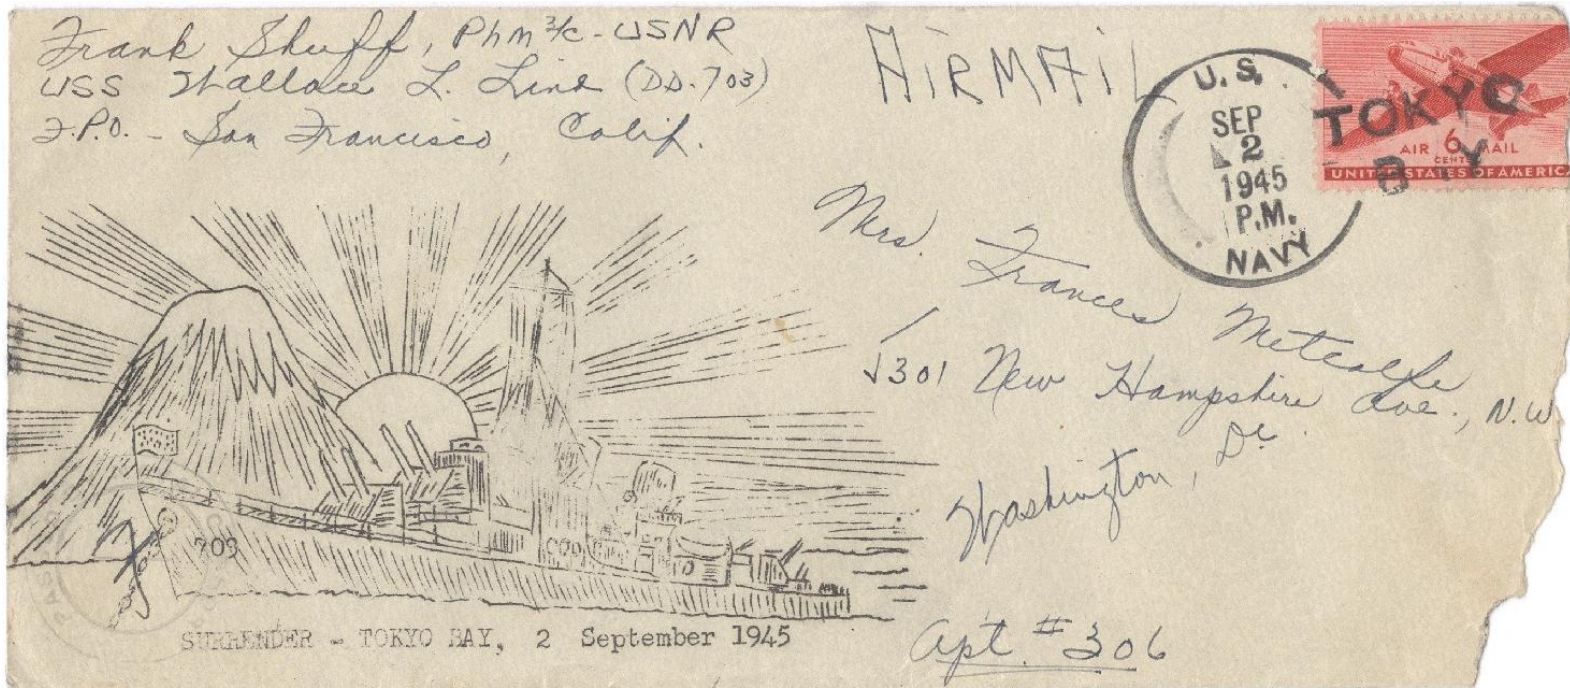 Frank Shuff, PhM 3/c - USNR
USS Wallace L. Lind (DD-703)
F.P.O. - San Francisco, Calif.
AIRMAIL
U.S.
SEP
2
1945
P.M.
NAVY
TOKYO
B Y
AIR 6 MAIL
CENTS
UNITED STATES OF AMERICA
Mrs. Frances Metcalfe
New Hampshire Ave., N.W
Washington, DC.
Apt #306
703
SURRENDER - TOKYO BAY, 2 September 1945